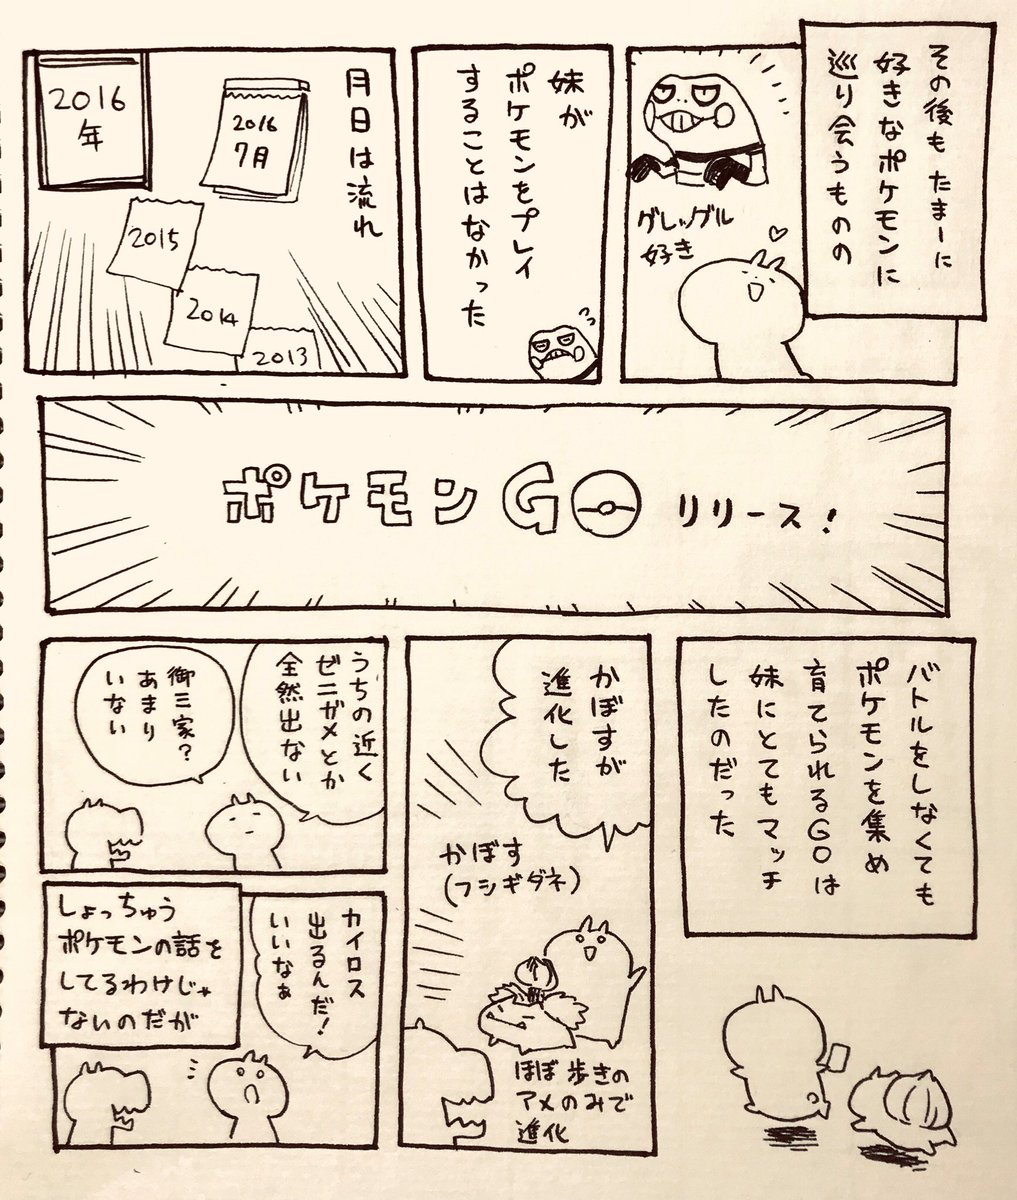 その後もたまーに
好きなポケモンに
巡り会うものの
グレッグル
好き
妹が
ポケモンをプレイ
することはなかった
月日は流れ
2016
7月
2016
年
2015
2014
2013
ポケモンGO リリース!
バトルをしなくても
ポケモンを集め
育てられるGOは
妹にとてもマッチ
したのだった
かぼすが
進化した
かぼす
(フシギダネ)
ほぼ歩きの
アメのみで
進化
うちの近く
ゼニガメとか
全然出ない
御三家?
あまり
いない
カイロス
出るんだ!
いいなぁ
しょっちゅう
ポケモンの話を
してるわけじゃ
ないのだが